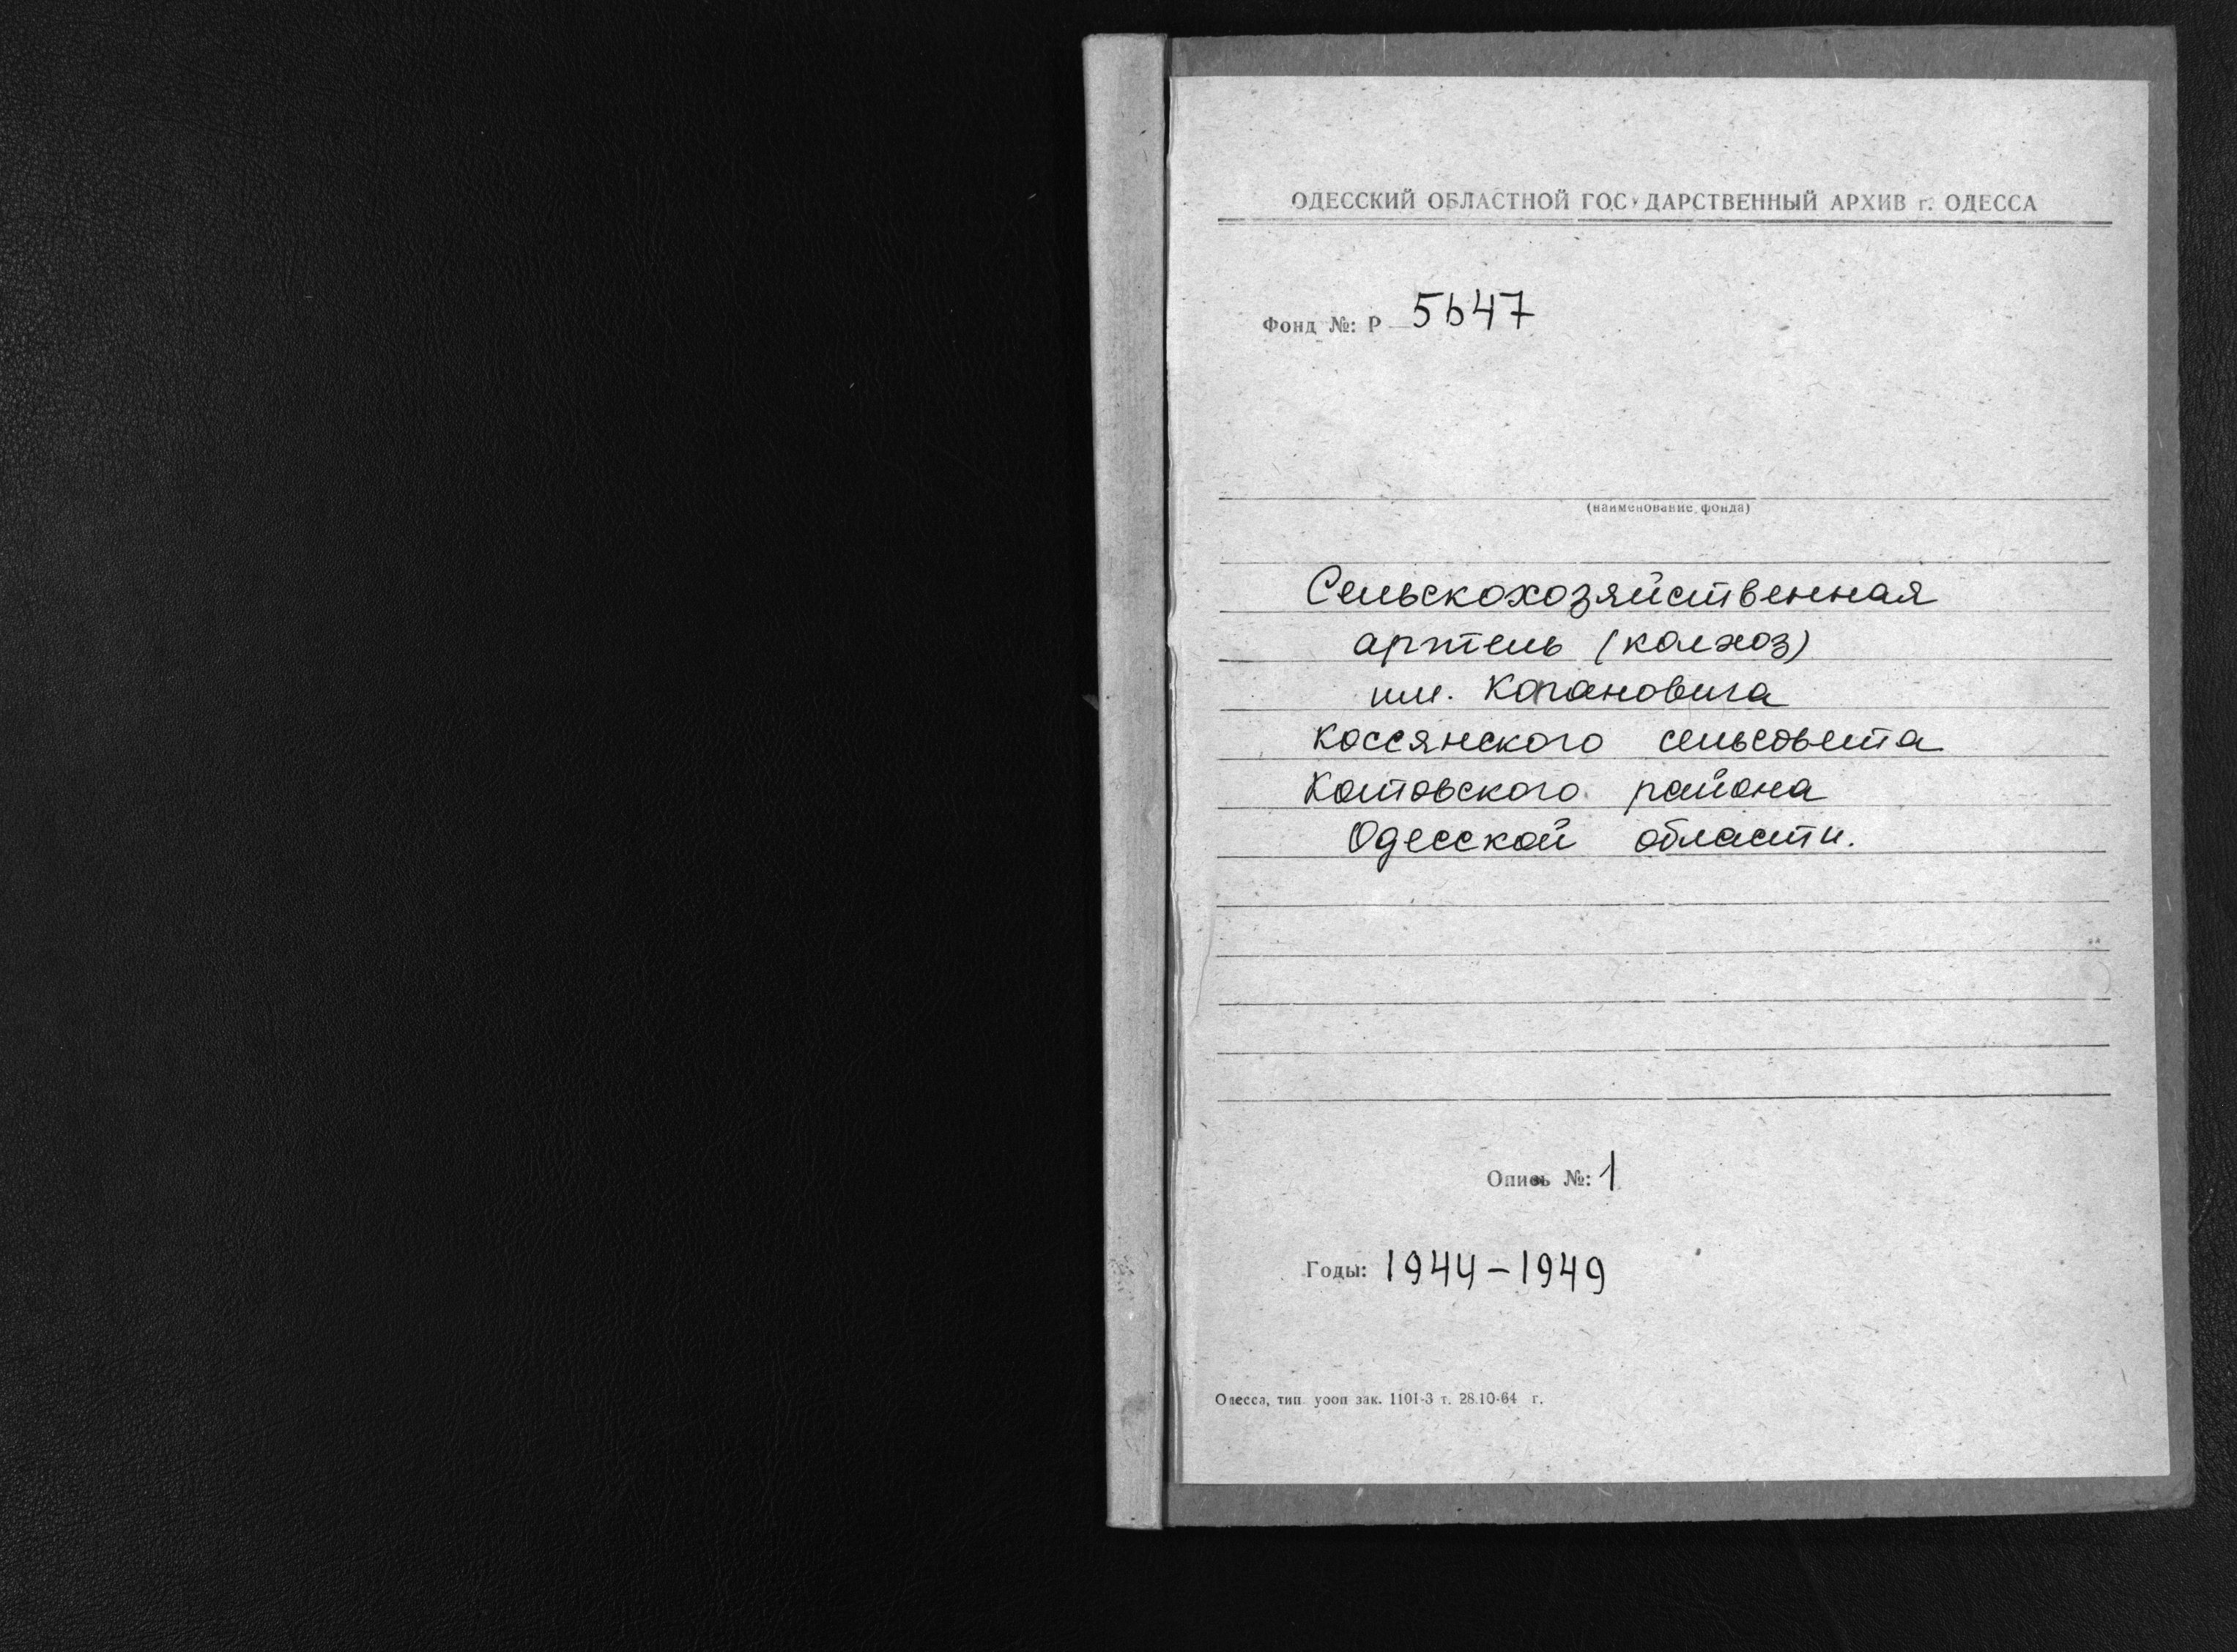 ОДЕССКИЙ ОБЛАСТНОЙ ГОСУДАРСТВЕННЫЙ АРХИВ г. ОДЕССА
Фонд №: Р 5647
(наименование фонда)
Сельскохозяйственная
артель (колхоз)
им. Кагановича
Коссянского сельсовета
Котовского района
Одесской области.
Опись №: 1
Годы: 1944-1949
Одесса, тип. уооп зак. 1101-3 т. 28.10-64 г.